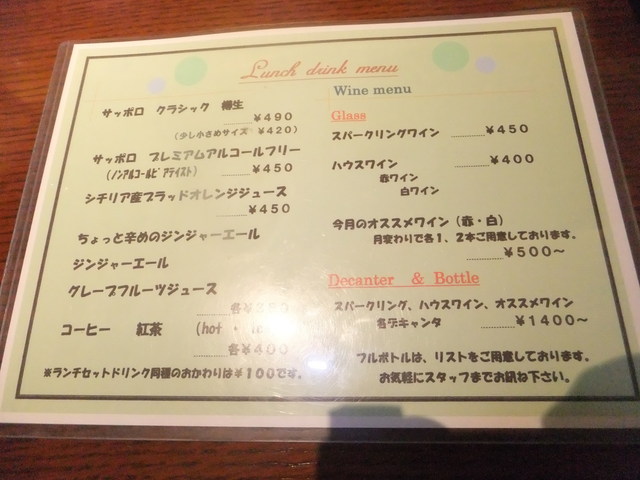 Lunch drink menu
サッポロ クラシック 樽生
¥490
(少し小さめサイズ ¥420)
サッポロ プレミアムアルコールフリー
(ノンアルコールビアテイスト) ¥450
シチリア産ブラッドオレンジジュース
¥450
ちょっと辛めのジンジャーエール
ジンジャーエール
グレープフルーツジュース
各¥
コーヒー 紅茶 (hot ・
各¥400
※ランチセットドリンク同種のおかわりは¥100です。
Wine menu
Glass
スパークリングワイン ¥450
ハウスワイン ¥400
赤ワイン
白ワイン
今月のオススメワイン(赤・白)
月変わりで各1、2本ご用意しております。
¥500〜
Decanter & Bottle
スパークリング、ハウスワイン、オススメワイン
各デキャンタ ¥1400〜
フルボトルは、リストをご用意しております。
お気軽にスタッフまでお訊ね下さい。